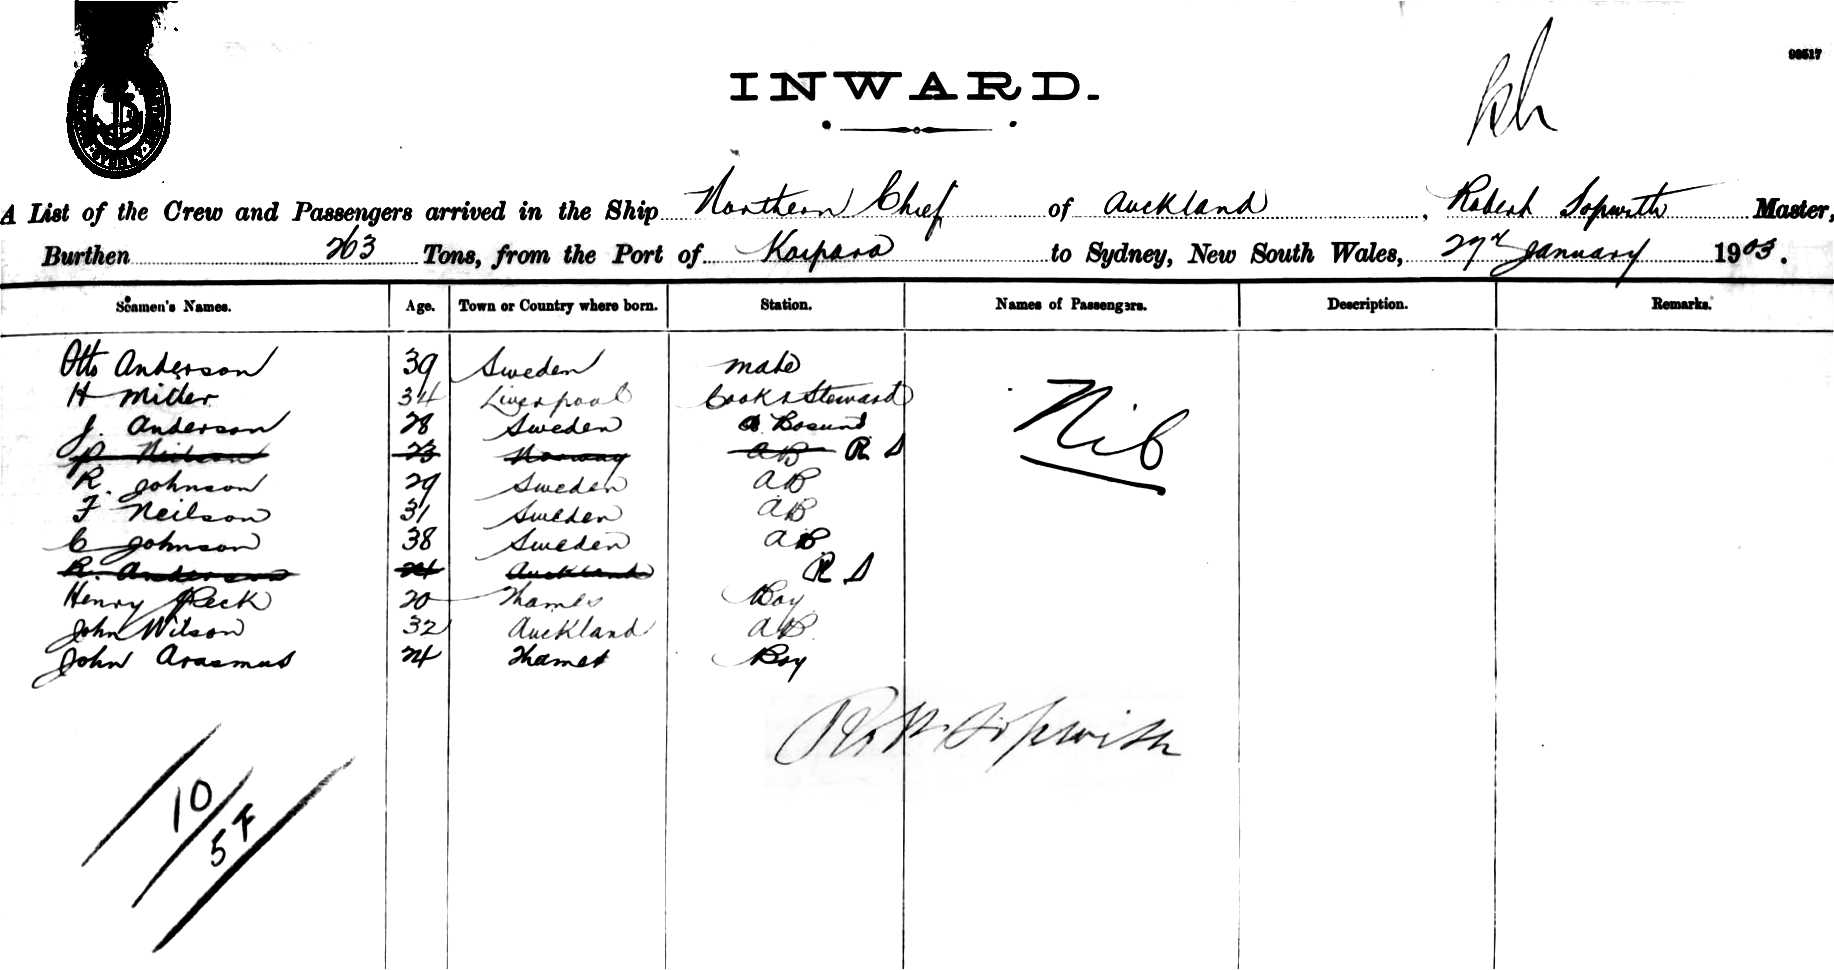 98517
INWARD.
A List of the Crew and Passengers arrived in the Ship Northern Chief of Auckland, Robert Sopwith Master,
Burthen 263 Tons, from the Port of Kaipara to Sydney, New South Wales, 27th January 1903.
Seamen's Names. Age. Town or Country where born. Station. Names of Passengers. Description. Remarks.
Otto Anderson 39 Sweden Mate
H Miller 34 Liverpool Cook & Steward
J. Anderson 28 Sweden Bosun
P Neilson 23 Norway AB R D
R. Johnson 29 Sweden AB
F Neilson 31 Sweden AB
C Johnson 38 Sweden AB
R. Anderson 24 Auckland R D
Henry Peck 20 Thames Boy
John Wilson 32 Auckland AB
John Arasmus 24 Thames Boy
Nil
Robt. Sopwith
10
5 F
SYDNEY